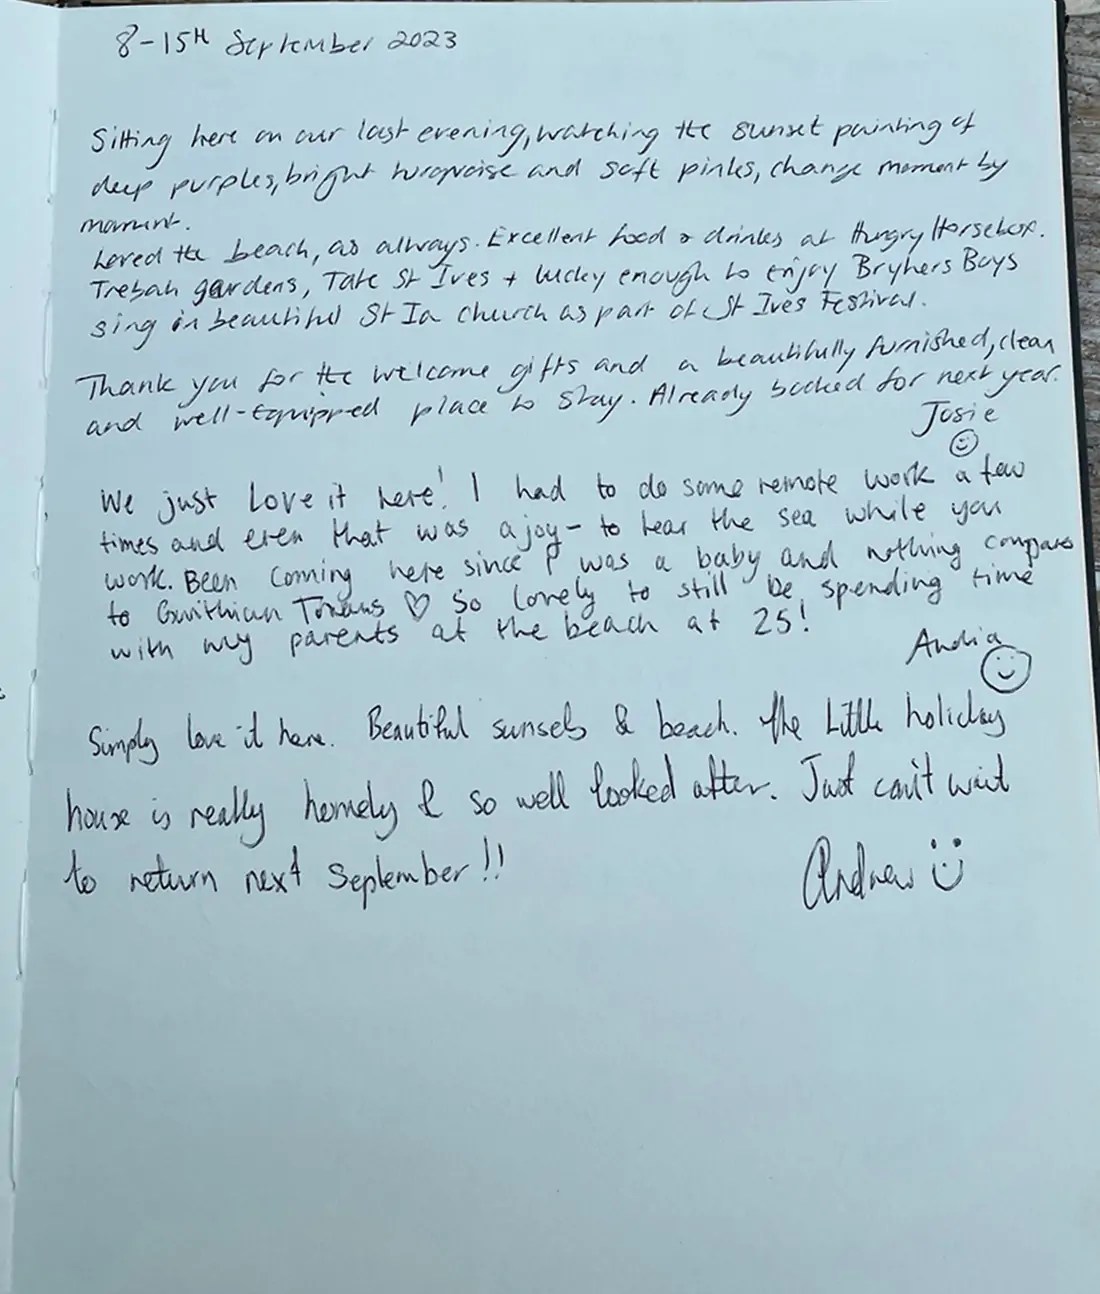 8-15TH September 2023
Sitting here on our last evening, watching the sunset painting of
deep purples, bright turquoise and soft pinks, change moment by
moment.
Loved the beach, as always. Excellent food & drinks at Hungry Horsebox.
Trebah gardens, Tate St Ives + lucky enough to enjoy Bryhers Boys
sing in beautiful St Ia church as part of St Ives Festival.
Thank you for the welcome gifts and a beautifully furnished, clean
and well-equipped place to stay. Already booked for next year.
Josie
☺
We just Love it here! I had to do some remote work a few
times and even that was a joy - to hear the sea while you
work. Been coming here since I was a baby and nothing compares
to Gwithian Towans ♡ So lovely to still be spending time
with my parents at the beach at 25!
☺
Simply love it here. Beautiful sunsets & beach. The Little holiday
house is really homely & so well looked after. Just can't wait
to return next September!!
Andrew ☺